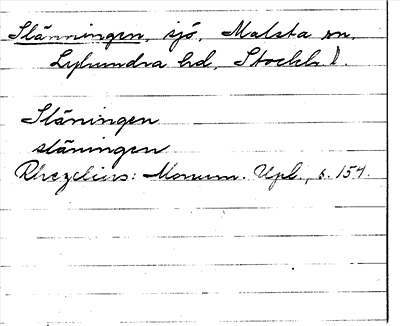 Slänningen, sjö, Malsta sn,
Lyhundra hd, Stockh. l.
Släningen
släningen
Rhezelius: Monum. Upl., s. 154.